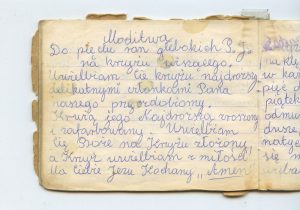 Modlitwa
Do pięciu ran głębokich P. J.
na krzyżu wiszącego.
Uwielbiam Cię krzyżu najdrozszy
delikatnymi członkami Pana
naszego przyozdobiony.
Krwią jego Najdrozką zroszony
i zafarbowany. Uwielbiam
Cię Boże na Krzyżu złożony,
a Krzyż uwielbiam z miłości
dla Ciebie Jezu Kochany „Amen
w ka
pię
piątek
odmu